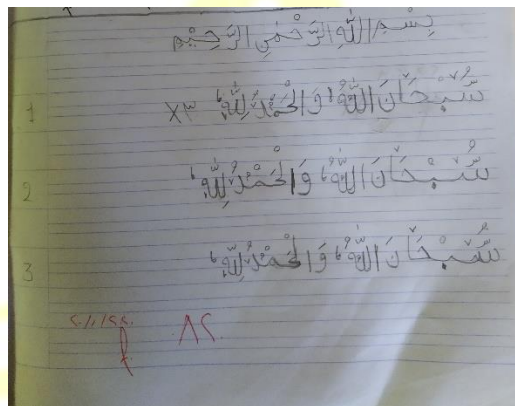 بِسْمِ اللَّهِ الرَّحْمٰنِ الرَّحِيْمِ
1 سُبْحَانَ اللَّهِ، وَالْحَمْدُ لِلَّهِ، ×٣
2 سُبْحَانَ اللَّهِ، وَالْحَمْدُ لِلَّهِ،
3 سُبْحَانَ اللَّهِ، وَالْحَمْدُ لِلَّهِ،
٨٢